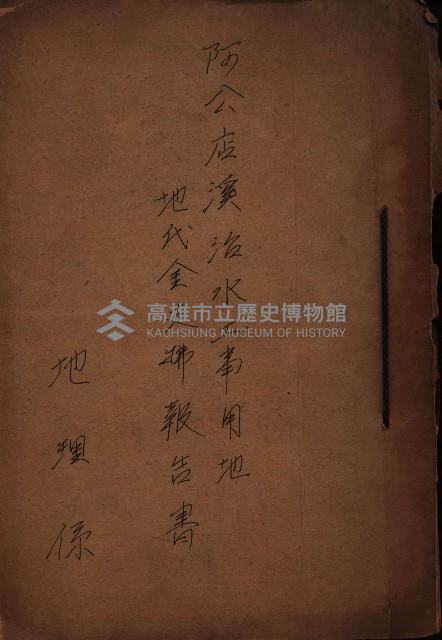 阿公店溪治水工事用地
地代金支拂報告書
地理係
高雄市立歷史博物館
KAOHSIUNG MUSEUM OF HISTORY